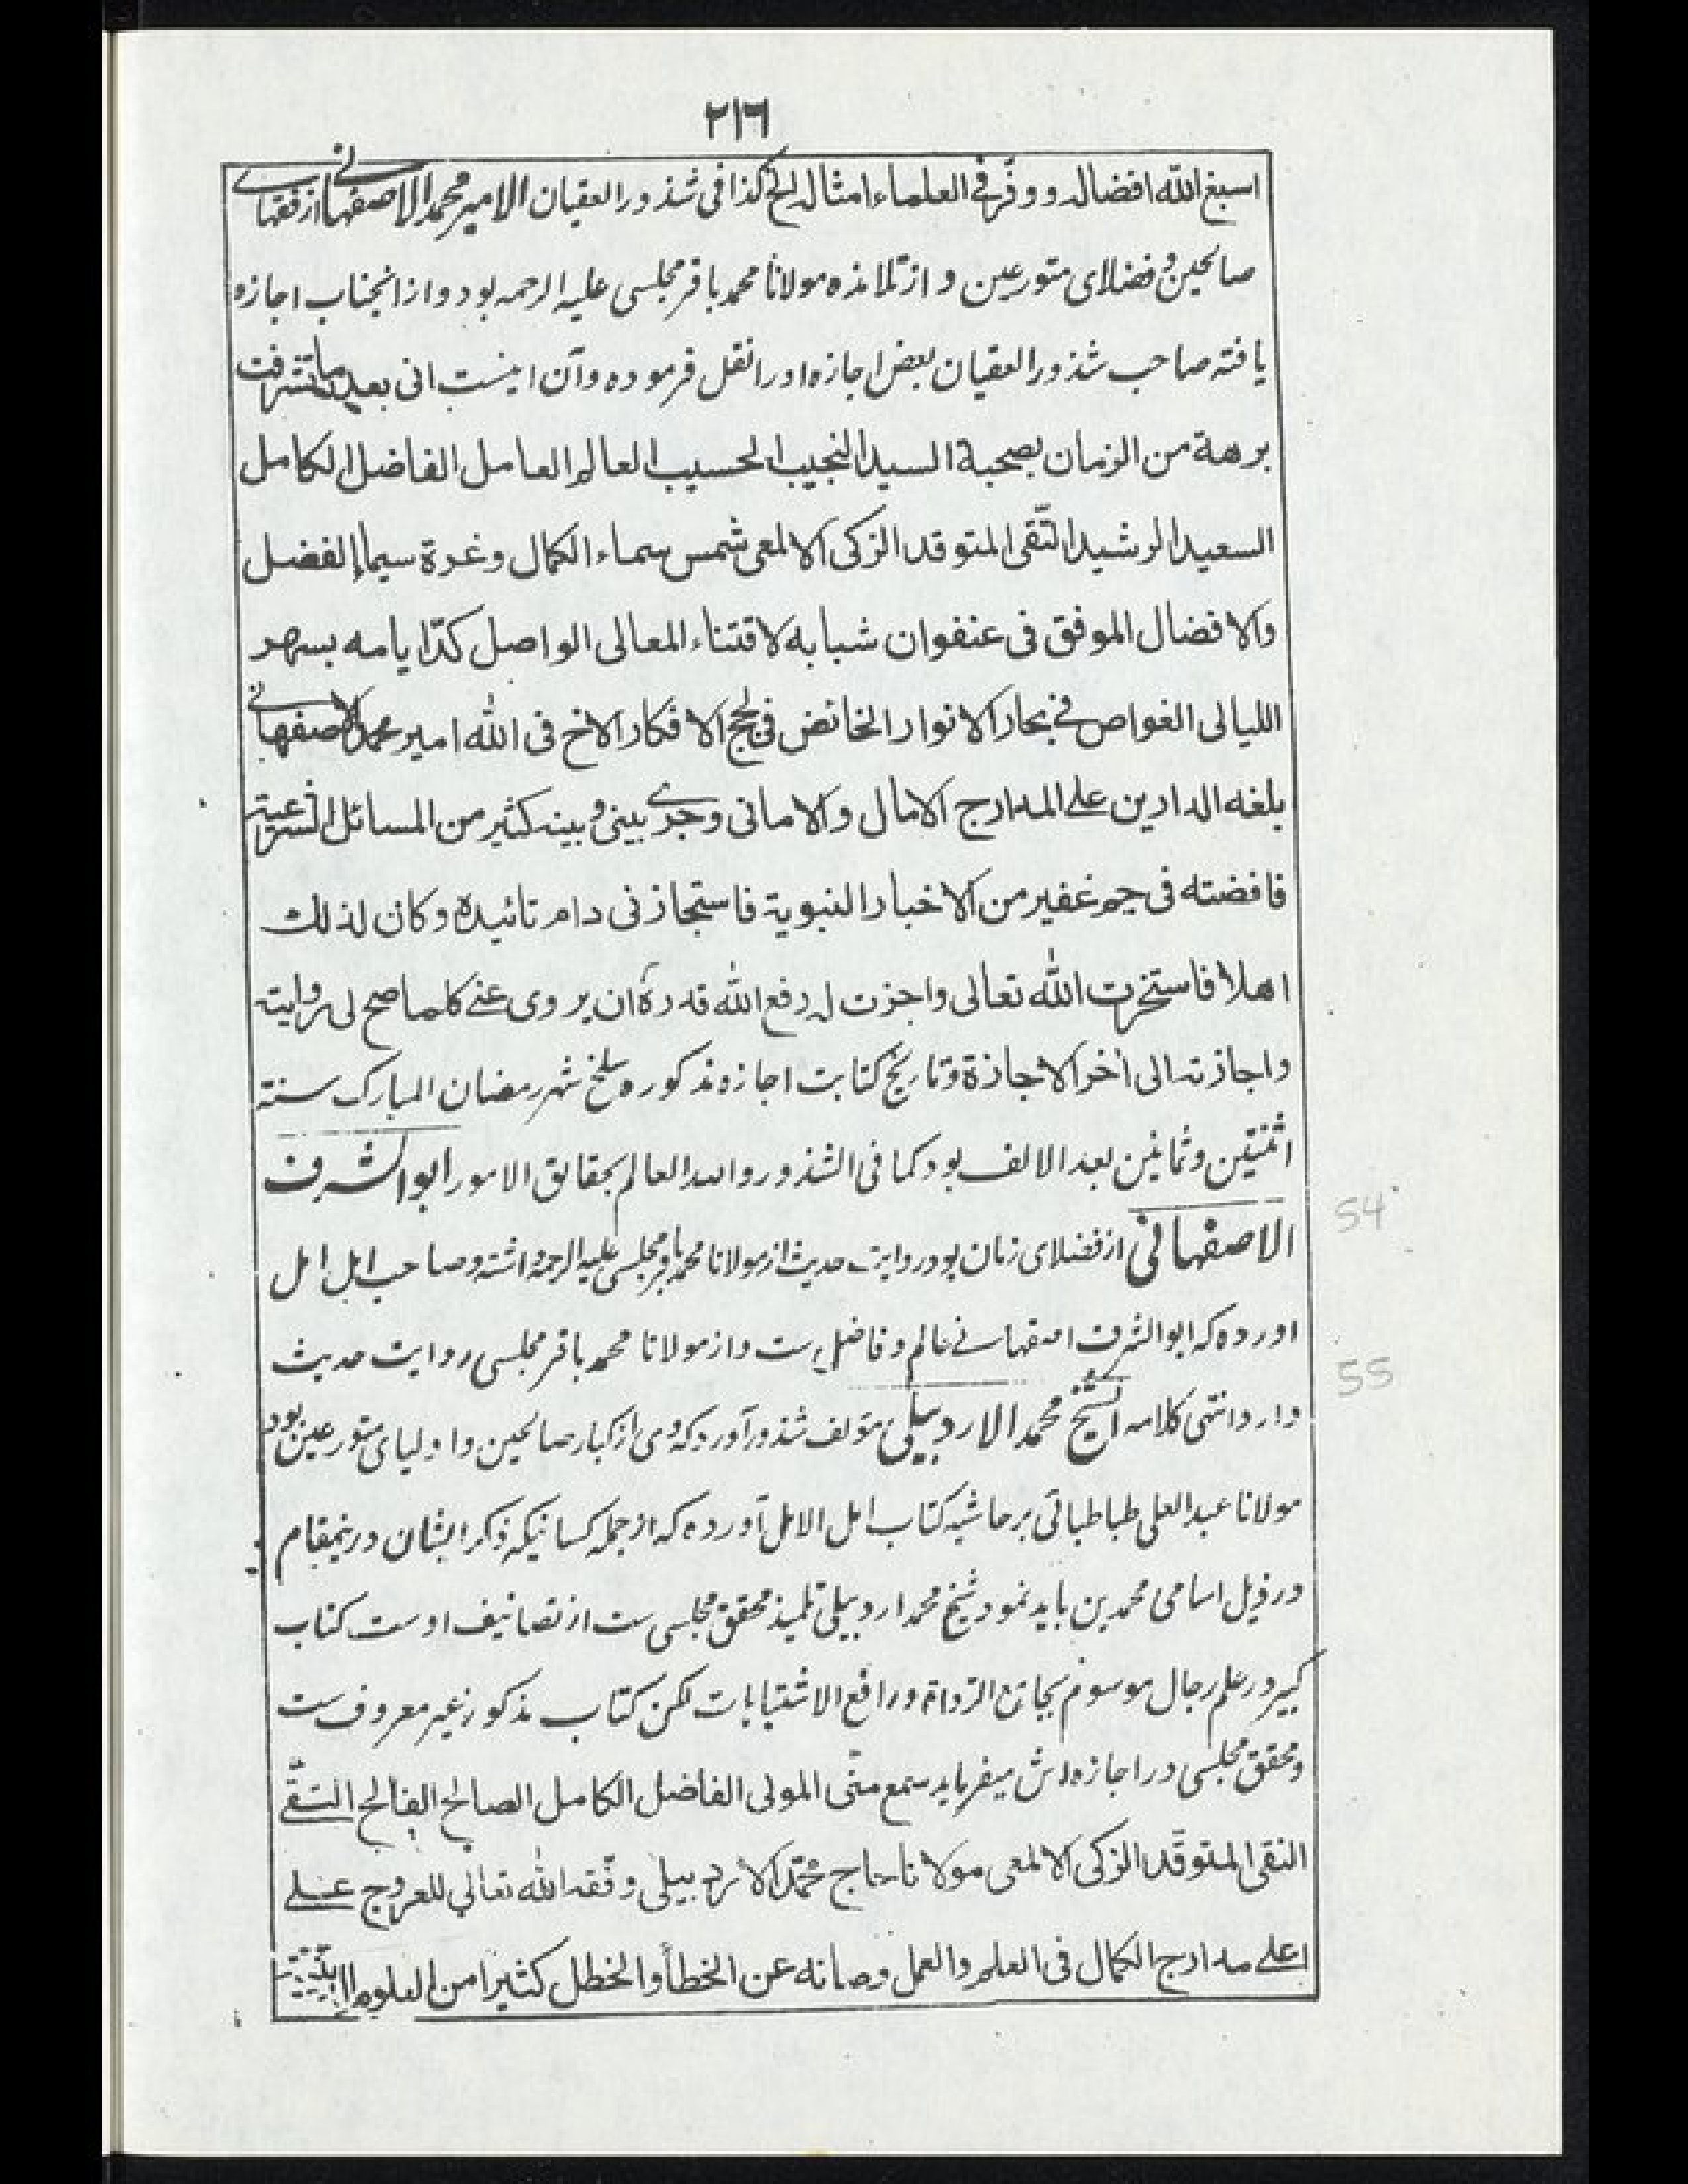 ٢١٦
اسبغ الله افضاله ووفّر فی العلماء امثاله الخ کذا فی شذور العقیان الامیر محمد الاصفهانی از فقهای
صالحین و فضلای متورعین و از تلامذه مولانا محمد باقر مجلسی علیه الرحمه بود و از انجناب اجازه
یافته صاحب شذور العقیان بعض اجازه اورا نقل فرموده و آن اینست انی بعد ما تشرفت
برهة من الزمان بصحبة السید النجیب الحسیب العالم العامل الفاضل الکامل
السعید الرشید التّقی المتوقد الزکی الالمعی شمس سماء الکمال وغرة سیماء الفضل
والافضال الموفق فی عنفوان شبابه لاقتناء المعالی الواصل کدّ ایامه بسهر
اللیالی الغواص فی بحار الانوار الخائض فی لجج الافکار الاخ فی الله امیر محمد الاصفهانی
بلغه الدارین علی المدارج الامال والامانی وجری بینی و بینه کثیر من المسائل الشرعیة
فافضته فی جم غفیر من الاخبار النبویة فاستجازنی دام تائیده وکان لذلک
اهلا فاستخرت الله تعالی واجزت له رفع الله قدره ان یروی عنی کلما صح لی روایته
واجازته الی اخر الاجازة وتاریخ کتابت اجازه مذکوره سلخ شهر رمضان المبارک سنة
اثنتین وثمانین بعد الالف بود کما فی الشذور والله العالم بحقایق الامور ابو الشرف
الاصفهانی از فضلای زمان بود روایت حدیث از مولانا محمد باقر مجلسی علیه الرحمه داشته و صاحب امل امل
اورده که ابو الشرف اصفهانی عالم و فاضل ست و از مولانا محمد باقر مجلسی روایت حدیث
دارد انتهی کلامه الشیخ محمد الاردبیلی مؤلف شذور آورده که وی از کبار صالحین و اولیای متورعین بود
مولانا عبد العلی طباطبائی بر حاشیه کتاب امل الامل آورده که از جمله کسانیکه ذکر ایشان درینمقام
در ذیل اسامی محمدین باید نمود شیخ محمد اردبیلی تلمیذ محقق مجلسی ست از تصانیف اوست کتاب
کبیر در علم رجال موسوم بجامع الرواة ورافع الاشتباهات لکن کتاب مذکور غیر معروف ست
و محقق مجلسی در اجازه اش میفرماید سمع منّی المولی الفاضل الکامل الصالح الفالح التّقی
النقی المتوقّد الزکی الالمعی مولانا حاج محمّد الاردبیلی وفّقه الله تعالی للعروج علی
اعلی مدارج الکمال فی العلم والعمل وصانه عن الخطأ والخطل کثیرا من العلوم الدینیة
54
55